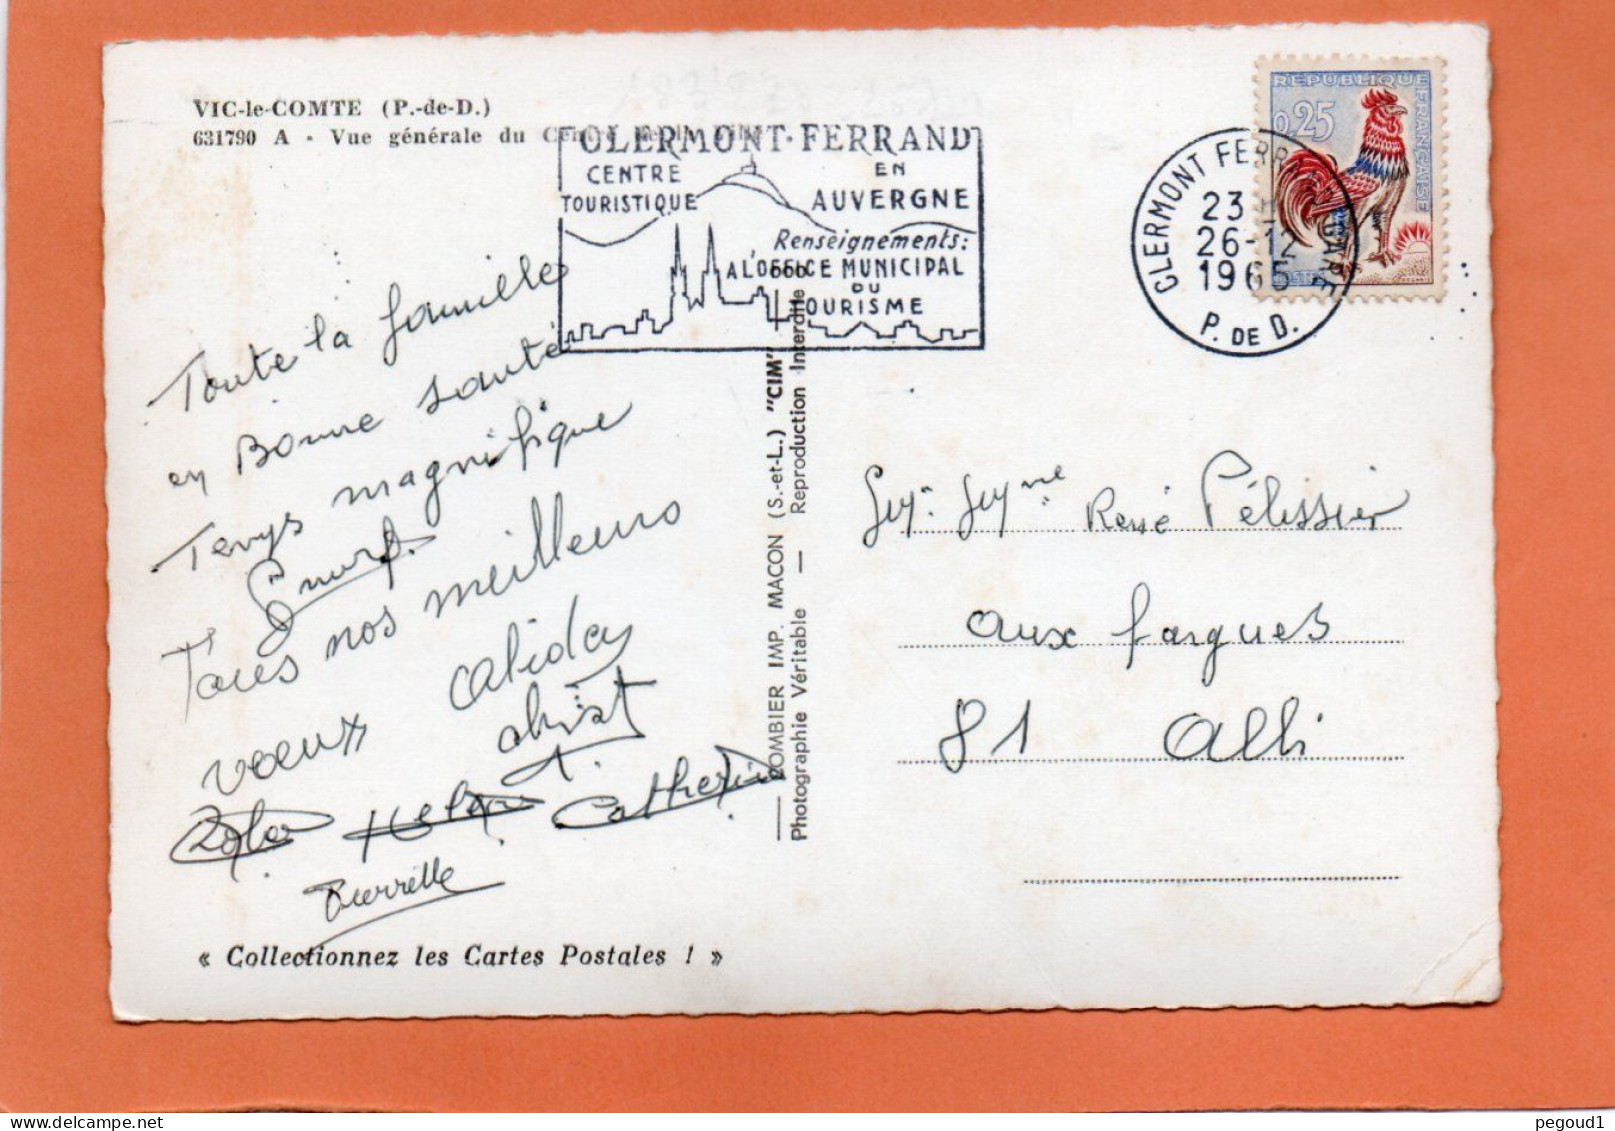 VIC-le-COMTE (P.-de-D.)
631790 A - Vue générale du
CLERMONT-FERRAND
CENTRE
TOURISTIQUE
EN
AUVERGNE
Renseignements:
A L'OFFICE MUNICIPAL
DU
TOURISME
REPUBLIQUE FRANÇAISE
0,25
POSTES
CLERMONT FERRAND GARE
23 H
26-12
1965
P. DE D.
Toute la famille
en Bonne santé
Temps magnifique
Tous nos meilleurs
voeux
christ
Helen Catherine
Pierrette
« Collectionnez les Cartes Postales ! »
COMBIER IMP. MACON (S.-et-L.) "CIM"
Photographie Véritable — Reproduction Interdite
René Pélissier
aux fargues
81 Albi
pegoud1